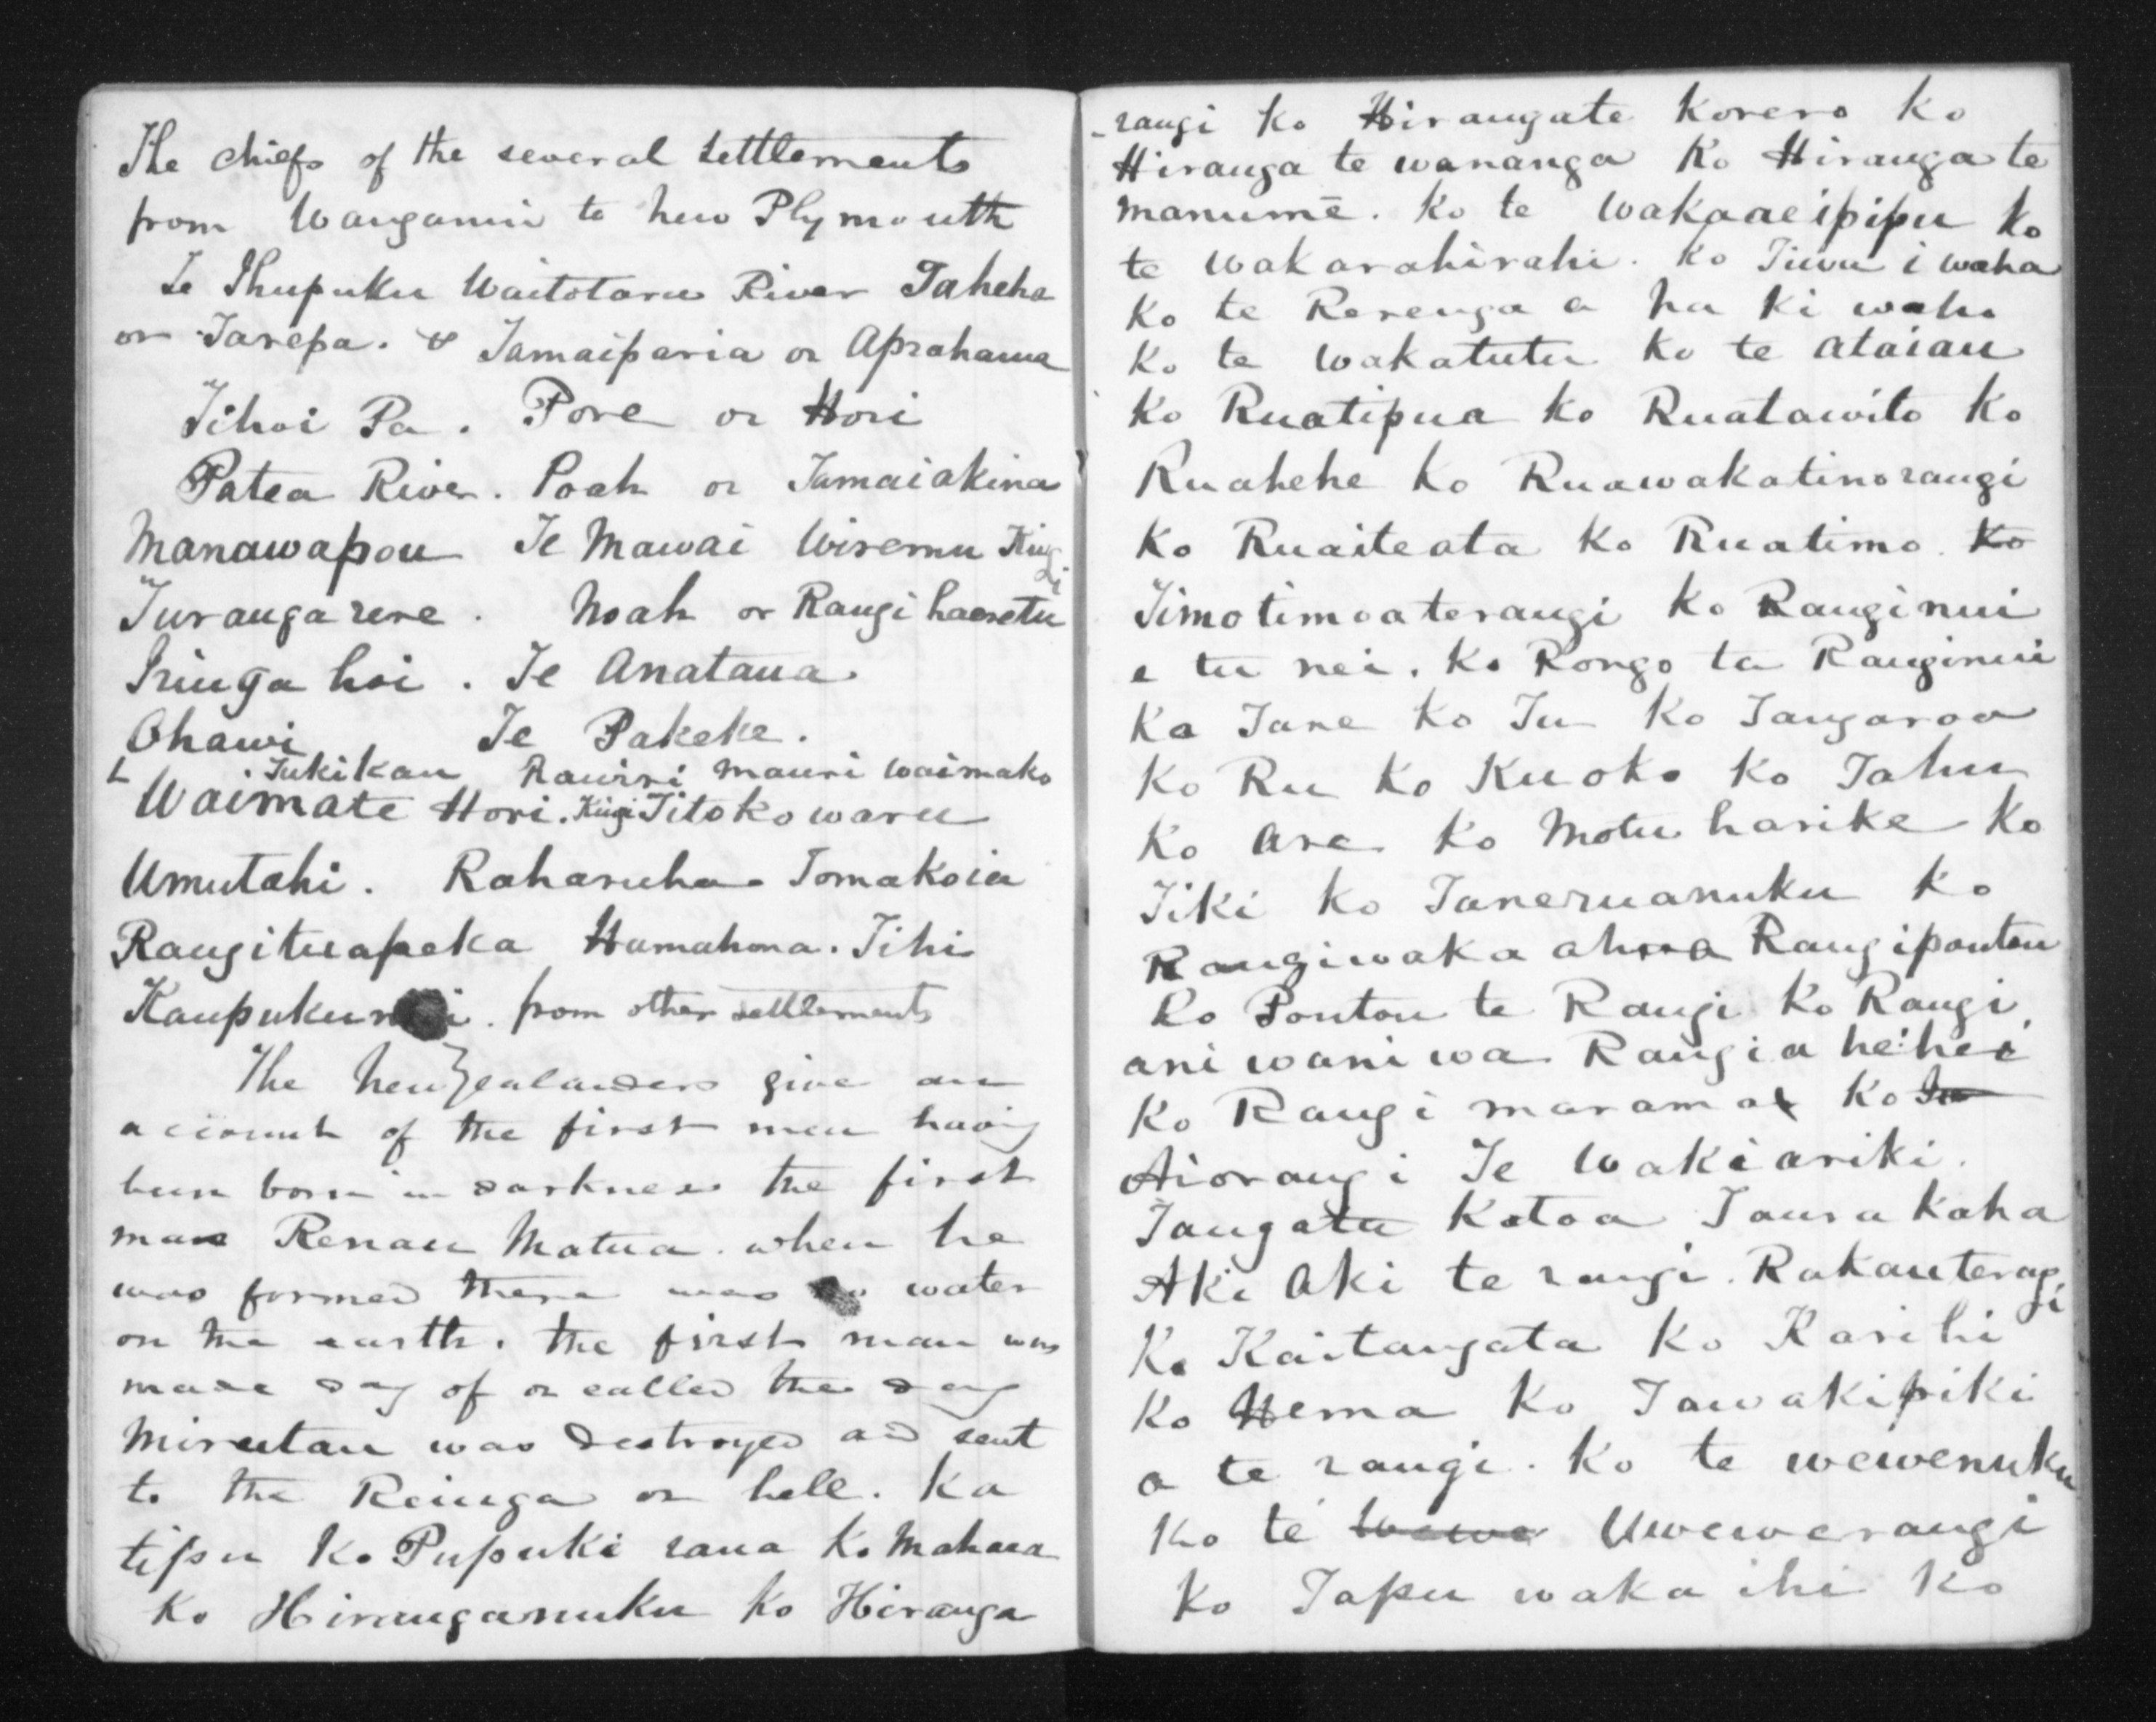 The chiefs of the several settlements
from Wanganui to New Plymouth
Te Ihupuku Waitotara River Taheha
or Tarepa. & Tamaiparia or Aprahama
Tihoi Pa. Pore or Hori
Patea River. Poah or Tamaiakina
Manawapou Te Mawai Wiremu Kingi
Turangarere. Noah or Rangihaeretu
Iringahoi. Te Anataua
Ohawi Te Pakeke.
Tukikau Rawiri Mauri Waimako
Waimate Hori. Kingi Titokowaru
Umutahi. Raharuha Tomakoia
Rangituapeka Hamahona. Tihi
from other settlements
The New Zealanders give an
account of the first men having
been born in darkness the first
man Renau Matua. when he
was formed there was no water
on the earth. the first man was
made day of or called the day
Mirutau was destroyed and sent
to the Reinga or hell. Ka
tipu Ko Pupuki raua Ko Mahara
Ko Hiranganuku Ko Hiranga
-rangi Ko Hirangate Korero Ko
Hiranga te wananga Ko Hiranga te
manumē. Ko te Wakaaeipipu Ko
te Wakarahirahi. Ko i waha
Ko te Rerenga a ha ki waho
Ko te Wakatutu Ko te Ataiau
Ko Ruatipua Ko Ruatawito Ko
Ruahehe Ko Ruawakatinorangi
Ko Ruaiteata Ko Ruatimo. Ko
Timotimoaterangi Ko Ranginui
e tu nei. Ko Rongo ta Ranginui
Ka Tane Ko Tu Ko Tangaroa
Ko Ru Ko Kuoko Ko Tahu
Ko Are Ko Motuharike Ko
Tiki Ko Taneruanuku Ko
Rangiwaka Rangipoutou
Ko Poutou te Rangi Ko Rangi
aniwaniwa Rangia hehei
Ko Rangi marama Ko
Aiorangi Te Wakiariki.
Tangata Katoa Taura Kaha
Aki Aki te rangi. Rakauteragi
Ko Kaitangata Ko Karihi
Ko Hema Ko Tawakipiki
a te rangi. Ko te wewenuku
Ko te Wewe Uwewerangi
Ko Tapu waka ihi Ko